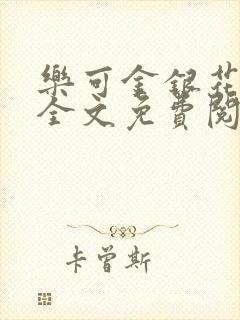 樂可金銀花
全文免費閱
卡曾斯